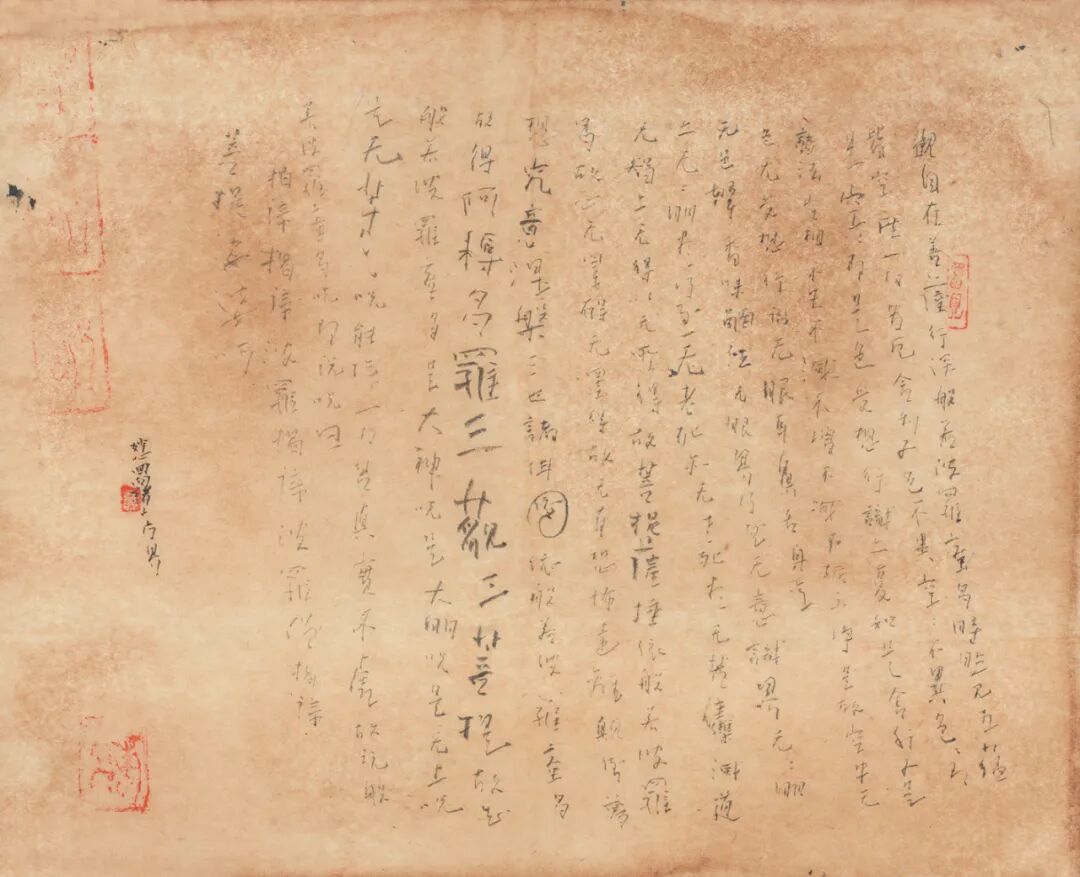 觀自在菩薩行深般若波羅蜜多時照見五蘊
皆空度一切苦厄舍利子色不異空〻不異色〻即
是空〻即是色受想行識亦復如是舍利子是
諸法空相不生不滅不增不減不垢不淨是故空中无
色无受想行識无眼耳鼻舌身意
无色聲香味觸法无眼界乃至无意識界无〻明
亦无〻明盡乃至无老死亦无老死盡无苦集滅道
无智亦无得以无所得故菩提薩埵依般若波羅
蜜多故心无罣礙无罣礙故无有恐怖遠離顛倒夢
想究竟涅槃三世諸佛依般若波羅蜜多
故得阿耨多羅三藐三菩提故知
般若波羅蜜多是大神咒是大明咒是无上咒
是无等〻咒能除一切苦真實不虛故說般
若波羅蜜多咒即說咒曰
揭諦揭諦波羅揭諦波羅僧揭諦
菩提娑婆訶